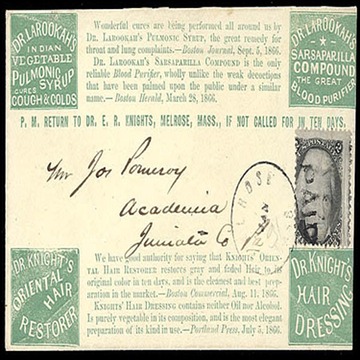 DR. LAROOKAH'S
INDIAN
VEGETABLE
PULMONIC
SYRUP
CURES
COUGH & COLDS
Wonderful cures are being performed all around us by
DR. LAROOKAH'S PULMONIC SYRUP, the great remedy for
throat and lung complaints.—Boston Journal, Sept. 5, 1866.
DR. LAROOKAH'S SARSAPARILLA COMPOUND is the only
reliable Blood Purifier, wholly unlike the weak decoctions
that have been palmed upon the public under a similar
name.—Boston Herald, March 28, 1866.
DR. LAROOKAH'S
SARSAPARILLA
COMPOUND
THE GREAT
BLOOD PURIFIER
P. M. RETURN TO DR. E. R. KNIGHTS, MELROSE, MASS., IF NOT CALLED FOR IN TEN DAYS.
Mr Jos Pomeroy
Academia
Juniata Co
ROSE
JAN
PAID
DR. KNIGHT'S
ORIENTAL
HAIR
RESTORER
We have good authority for saying that KNIGHTS' ORIEN-
TAL HAIR RESTORER restores gray and faded Hair to its
original color in ten days, and is the cleanest and best prep-
aration in the market.—Boston Commercial, Aug. 11, 1866.
KNIGHTS' HAIR DRESSING contains neither Oil nor Alcohol.
Is purely vegetable in its composition, and is the most elegant
preparation of its kind in use.—Portland Press, July 5, 1866.
DR. KNIGHT'S
HAIR
DRESSING